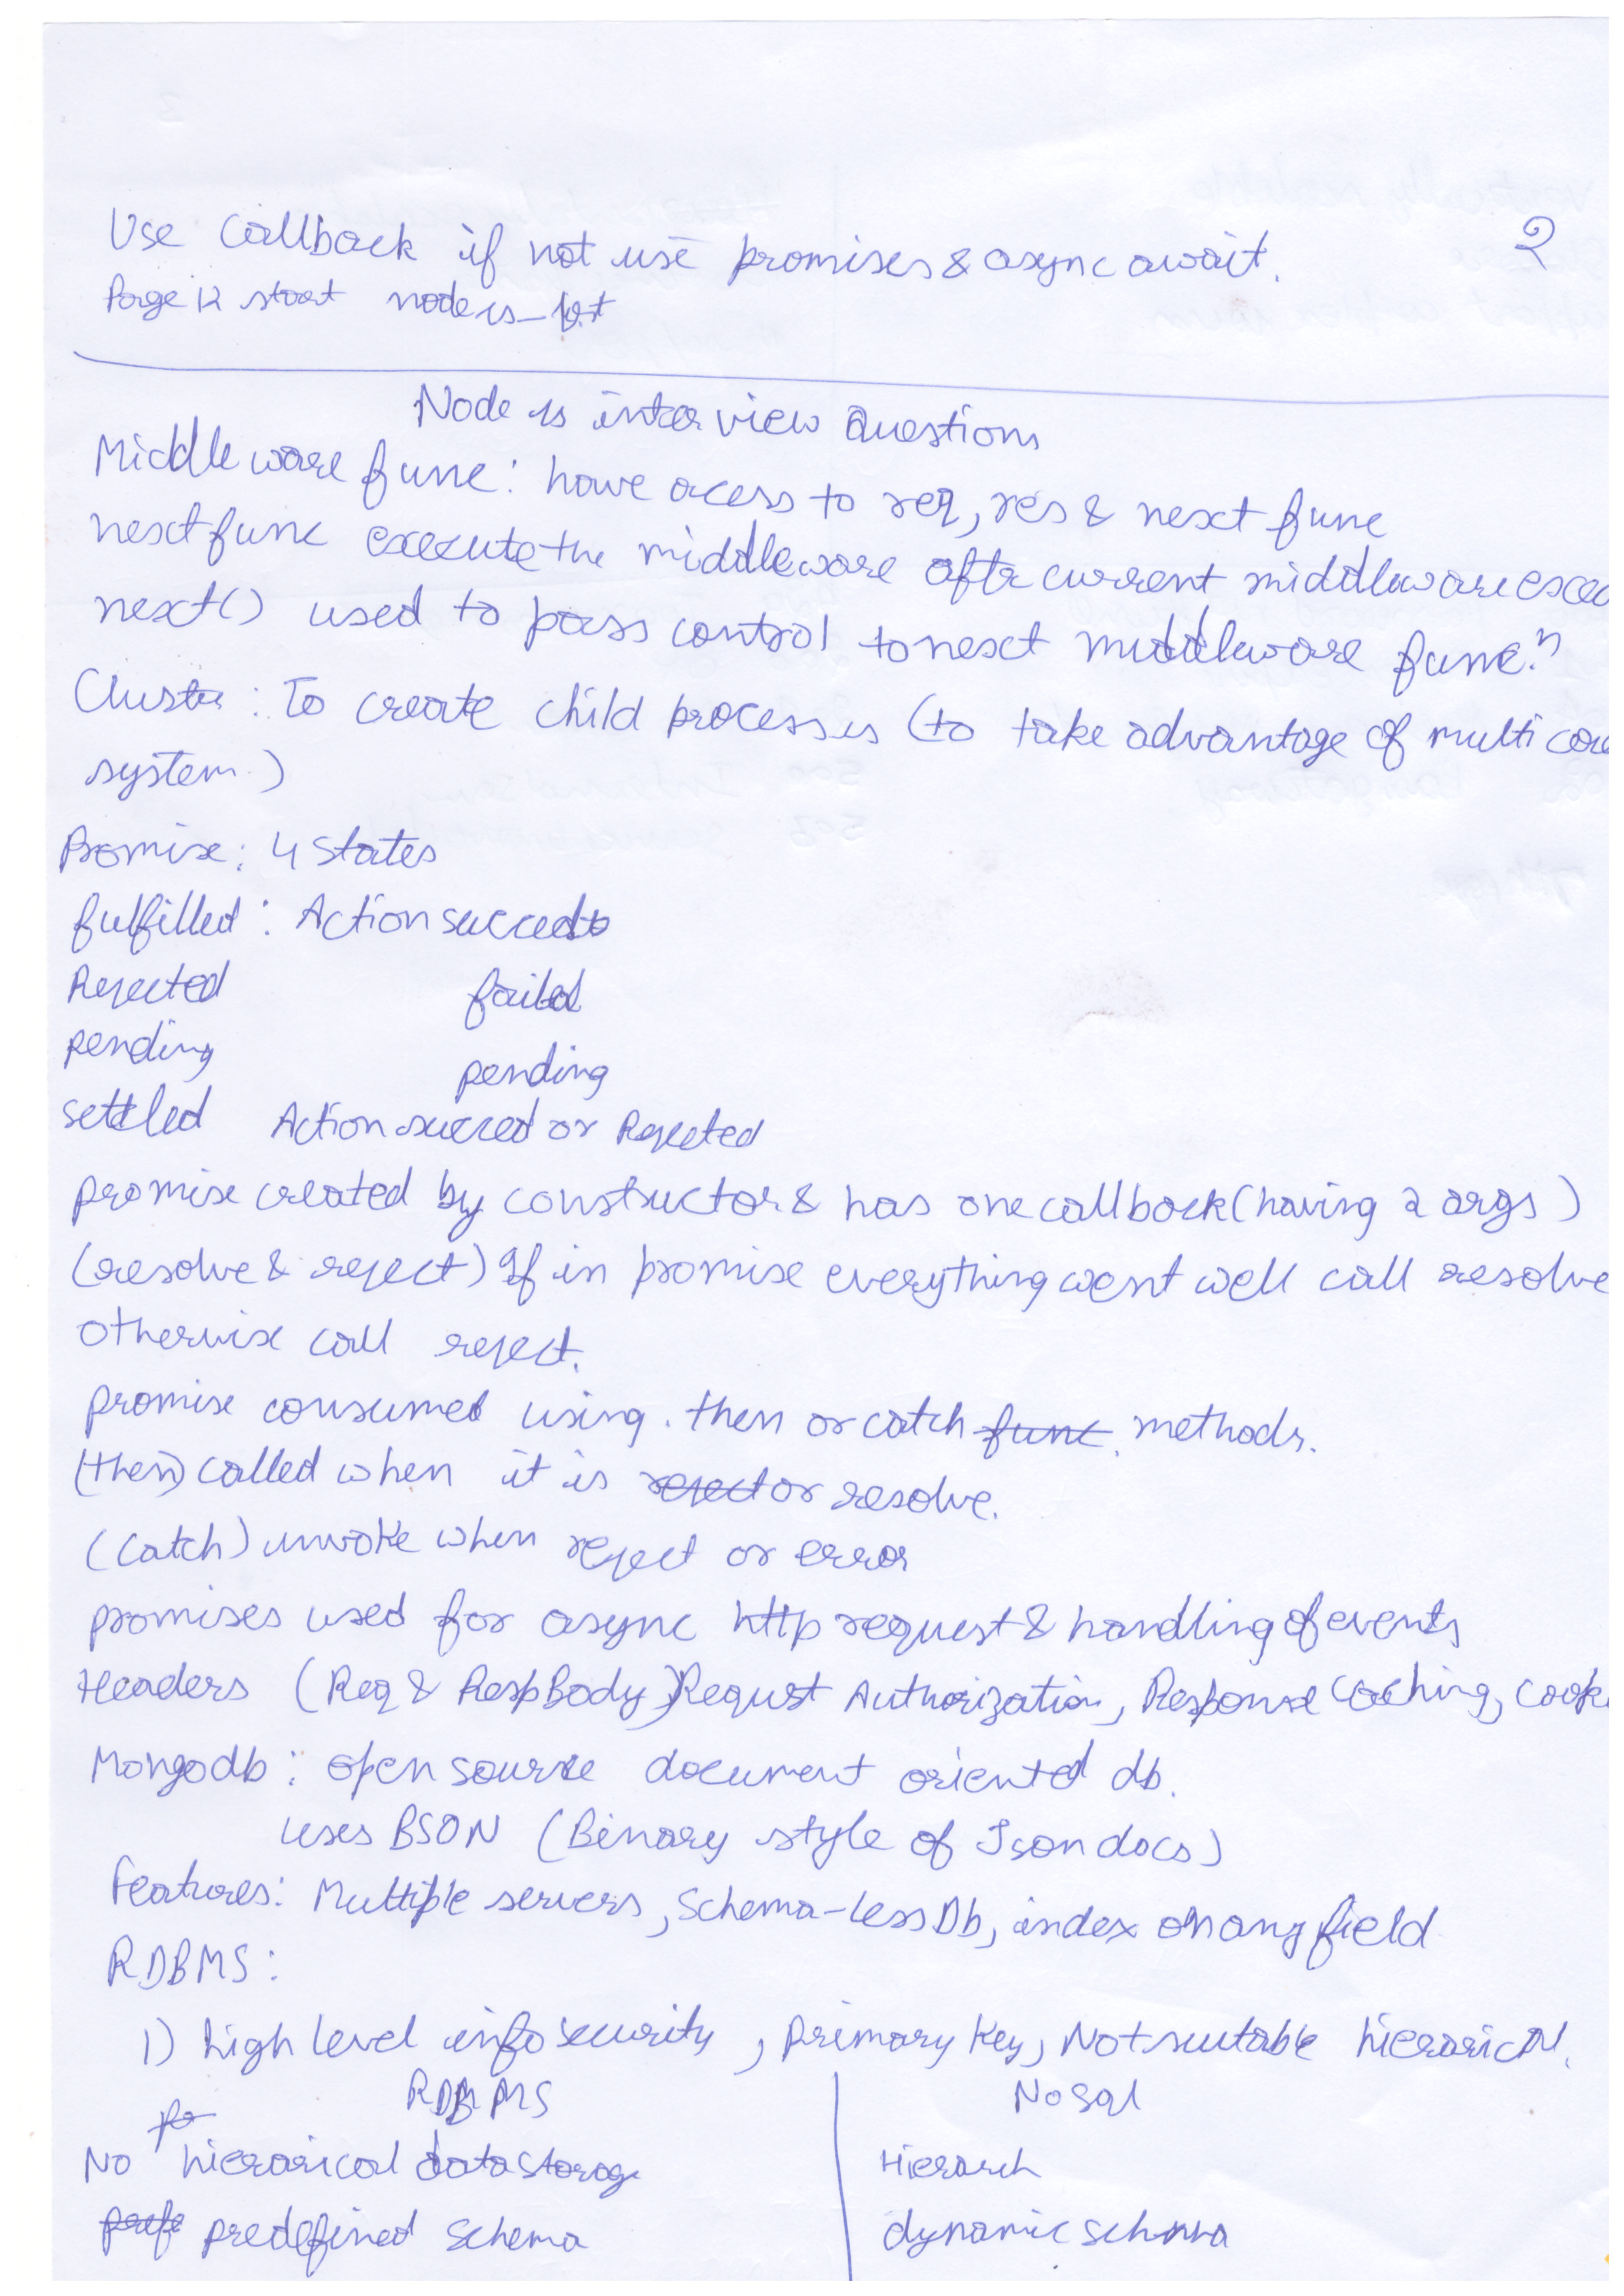 2
Use Callback if not use promises & async await.
Page 12 start nodejs_
Node js interview Questions
Middleware func: have acess to req, res & next func
next func execute the middleware after current middleware exec
next() used to pass control to next middleware func.n
Cluster: To create child processes (to take advantage of multi core
system)
Promise: 4 States
fulfilled: Action succed
Rejected failed
pending pending
settled Action succed or Rejected
promise created by constructor & has one callback (having 2 args)
(resolve & reject) If in promise everything went well call resolve
otherwise call reject.
promise consumed using .then or catch func. methods.
(then) called when it is reject or resolve.
(catch) invoke when reject or error
promises used for async http request & handling of events
Headers (Req & Resp Body) Request Authorization, Response caching, cook
Mongodb: open source document oriented db.
uses BSON (Binary style of Json docs)
Features: Multiple servers, Schema-less Db, index on any field
RDBMS:
1) high level info security, primary key, Not suitable hierarical.
RDBMS NoSql
No for hierarical data storage Hierarch
predefined schema dynamic schema